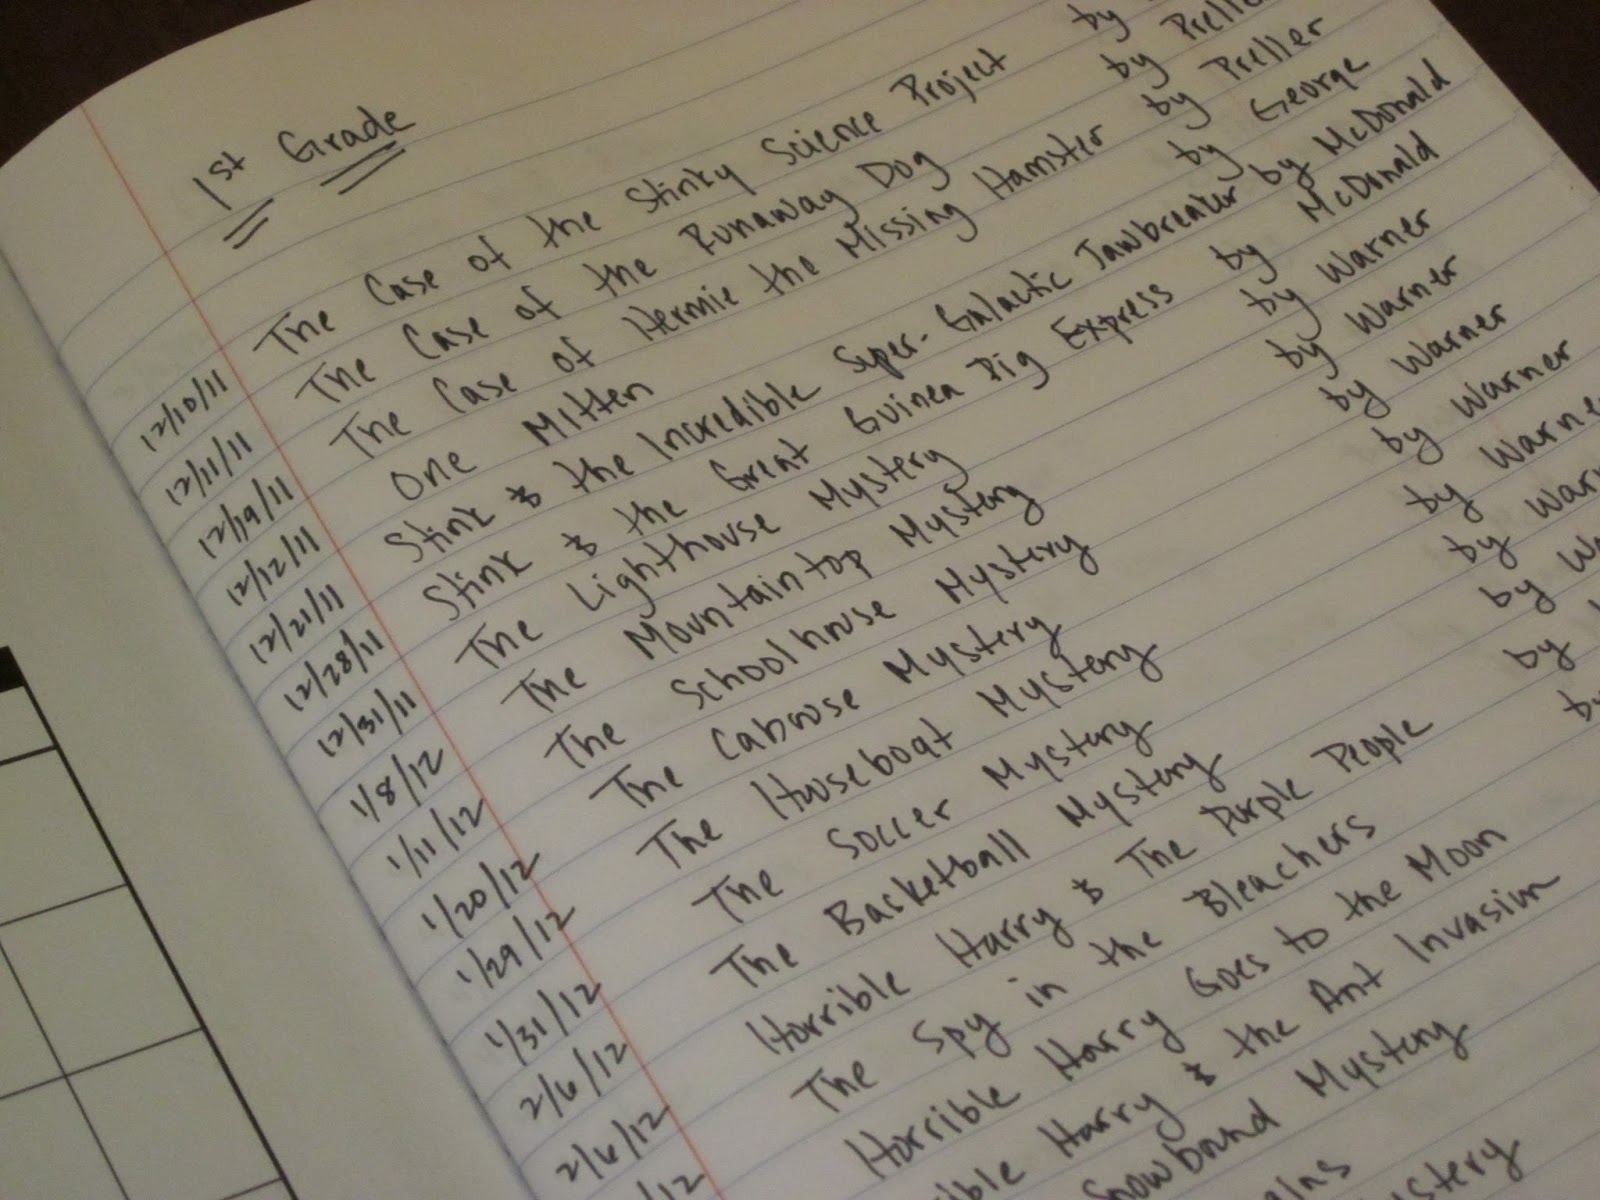 1st Grade
12/10/11 The Case of the Stinky Science Project by
12/11/11 The Case of the Runaway Dog by Preller
12/19/11 The Case of Hermie the Missing Hamster by Preller
12/12/11 One Mitten by George
12/21/11 Stink & the Incredible Super-Galactic Jawbreaker by McDonald
12/28/11 Stink & the Great Guinea Pig Express by McDonald
12/31/11 The Lighthouse Mystery by Warner
1/8/12 The Mountaintop Mystery by Warner
1/11/12 The Schoolhouse Mystery by Warner
1/20/12 The Caboose Mystery by Warner
1/29/12 The Houseboat Mystery by Warner
1/31/12 The Soccer Mystery by War
2/6/12 The Basketball Mystery by Wa
2/6/12 Horrible Harry & The Purple People by
/12 The Spy in the Bleachers by
Horrible Harry Goes to the Moon
ible Harry & the Ant Invasion
Snowbound Mystery
ains
ystery